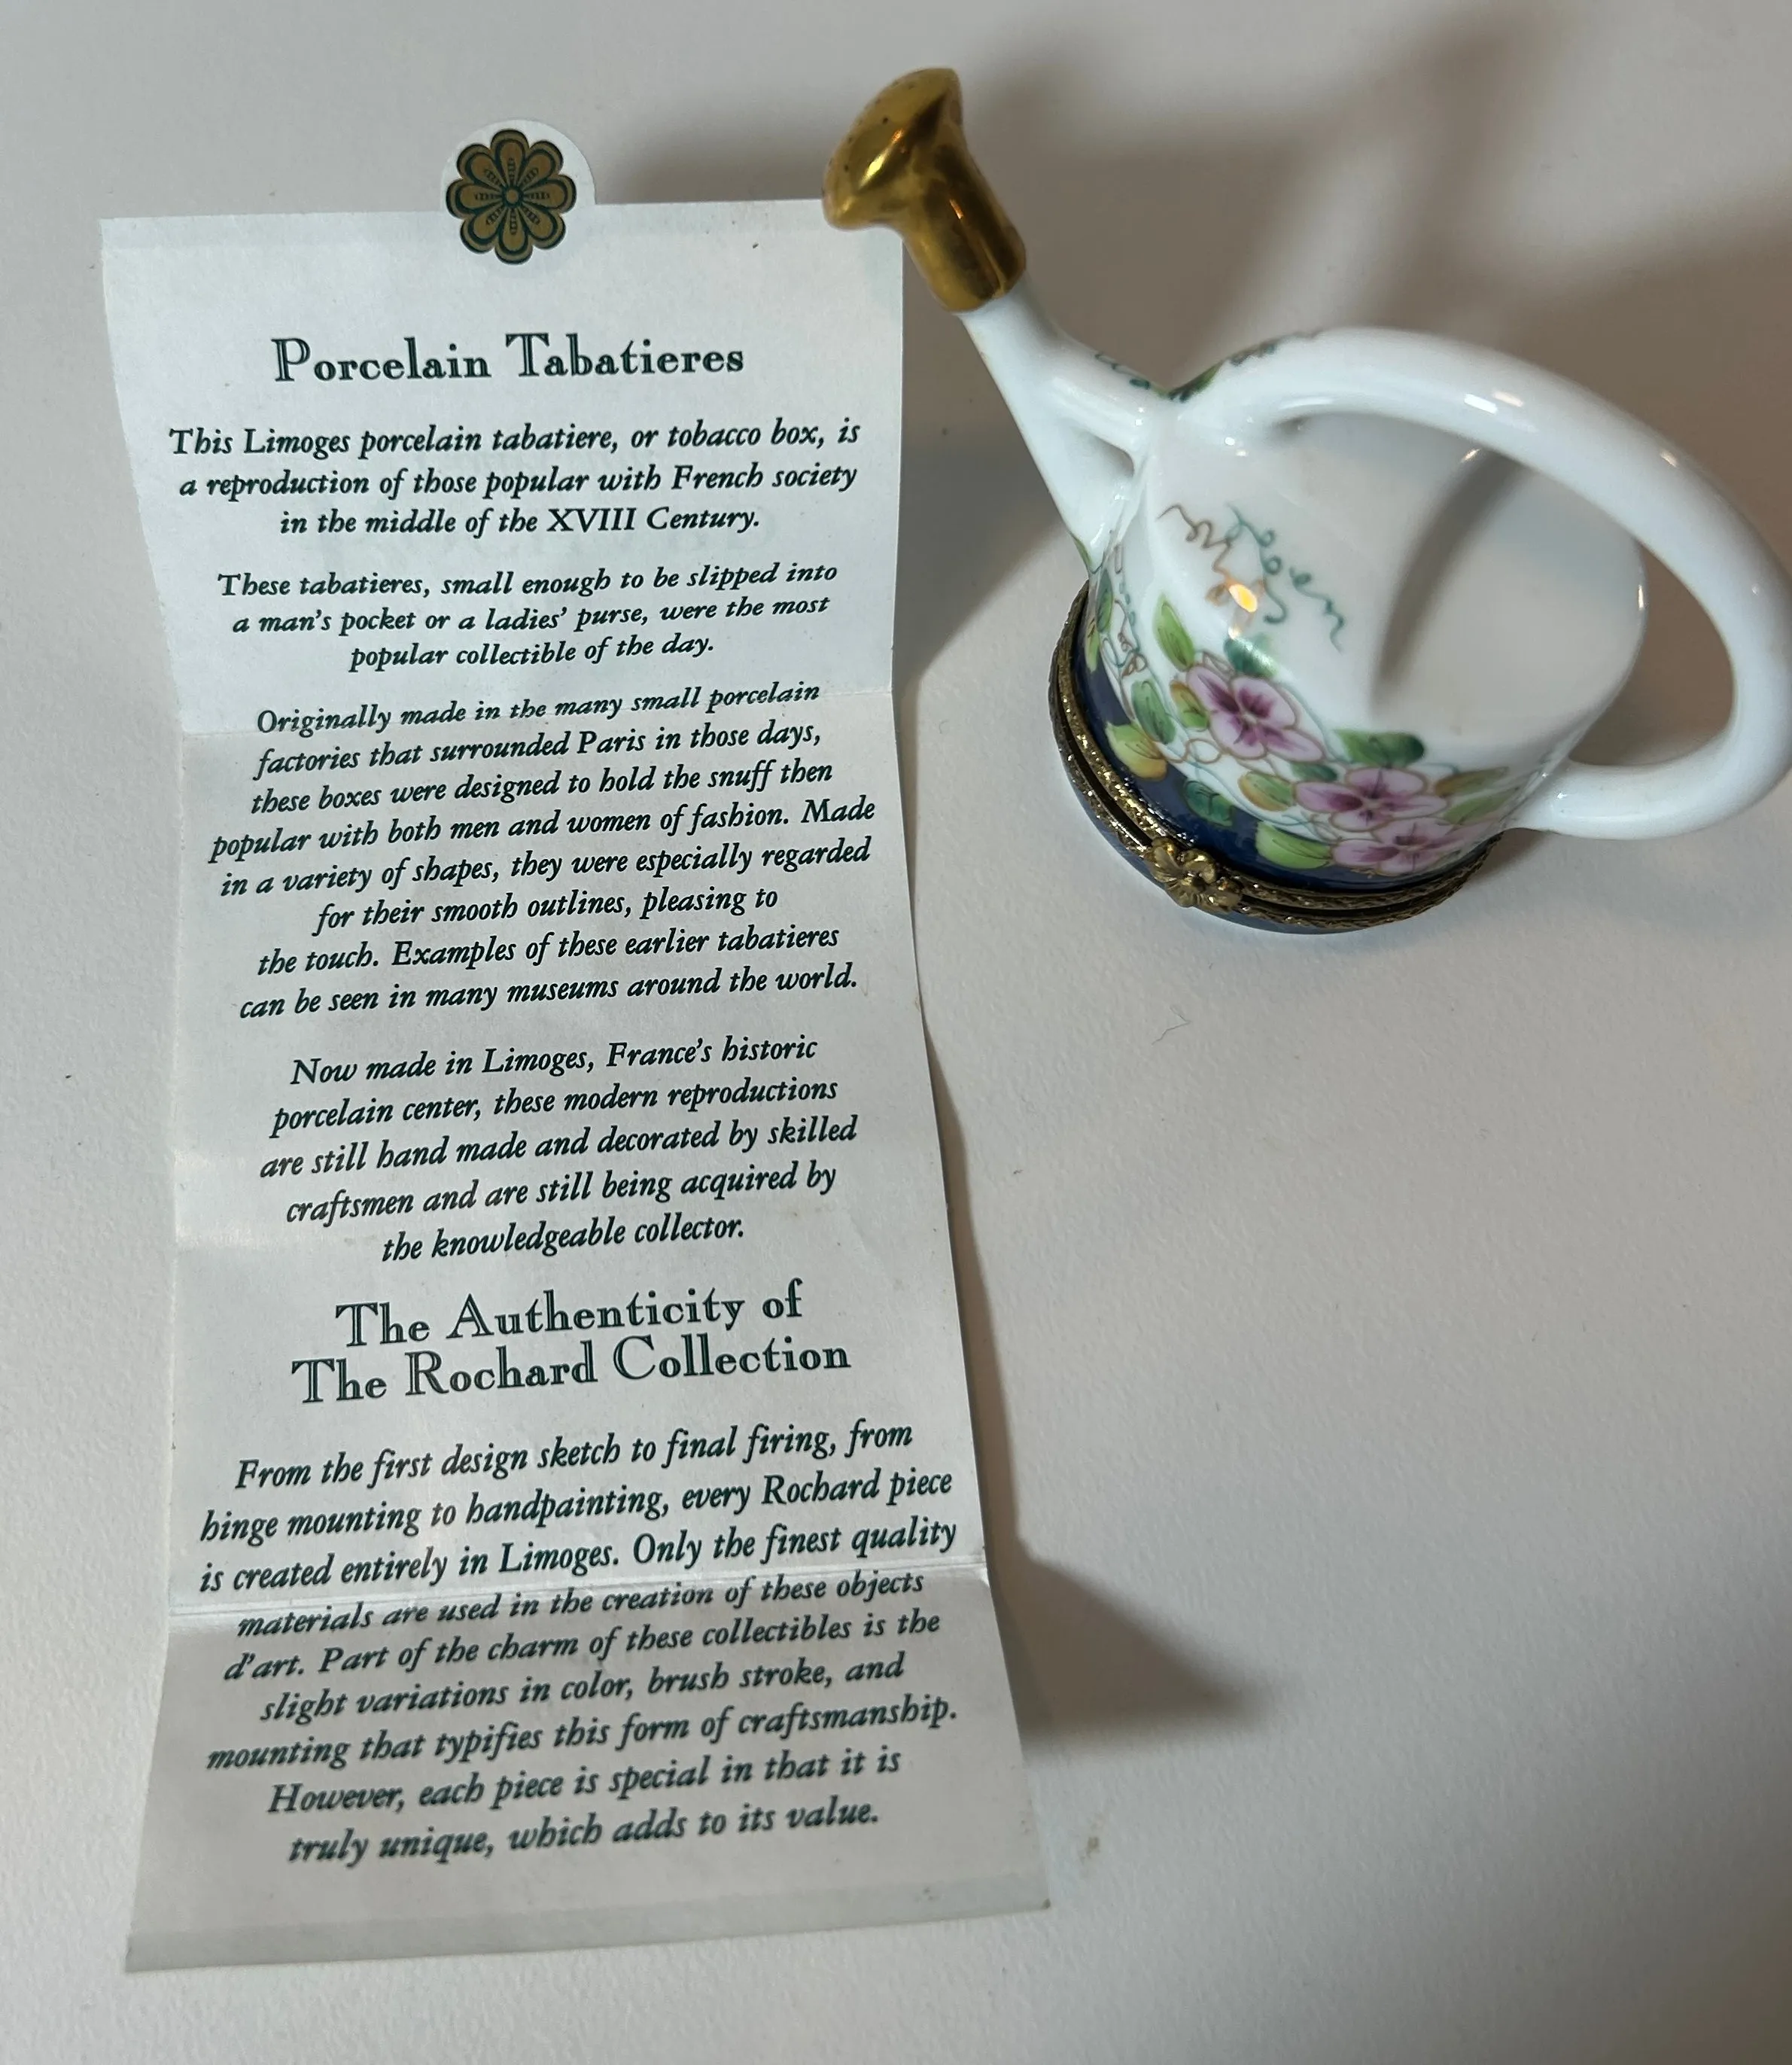 Porcelain Tabatieres
This Limoges porcelain tabatiere, or tobacco box, is
a reproduction of those popular with French society
in the middle of the XVIII Century.
These tabatieres, small enough to be slipped into
a man's pocket or a ladies' purse, were the most
popular collectible of the day.
Originally made in the many small porcelain
factories that surrounded Paris in those days,
these boxes were designed to hold the snuff then
popular with both men and women of fashion. Made
in a variety of shapes, they were especially regarded
for their smooth outlines, pleasing to
the touch. Examples of these earlier tabatieres
can be seen in many museums around the world.
Now made in Limoges, France's historic
porcelain center, these modern reproductions
are still hand made and decorated by skilled
craftsmen and are still being acquired by
the knowledgeable collector.
The Authenticity of
The Rochard Collection
From the first design sketch to final firing, from
hinge mounting to handpainting, every Rochard piece
is created entirely in Limoges. Only the finest quality
materials are used in the creation of these objects
d'art. Part of the charm of these collectibles is the
slight variations in color, brush stroke, and
mounting that typifies this form of craftsmanship.
However, each piece is special in that it is
truly unique, which adds to its value.